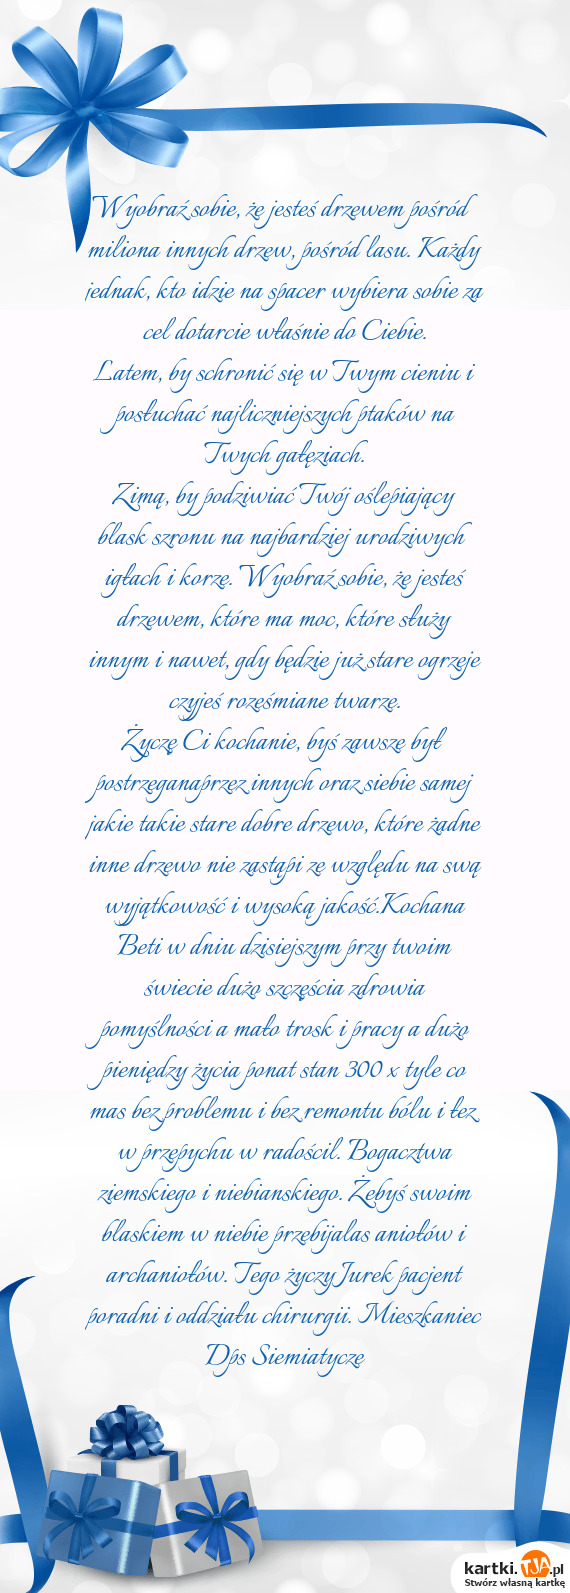 Wyobraź sobie, że jesteś drzewem pośród
miliona innych drzew, pośród lasu. Każdy
jednak, kto idzie na spacer wybiera sobie za
cel dotarcie właśnie do Ciebie.
Latem, by schronić się w Twym cieniu i
posłuchać najliczniejszych ptaków na
Twych gałęziach.
Zimą, by podziwiać Twój oślepiający
blask szronu na najbardziej urodziwych
igłach i korze. Wyobraź sobie, że jesteś
drzewem, które ma moc, które służy
innym i nawet, gdy będzie już stare ogrzeje
czyjeś roześmiane twarze.
Życzę Ci kochanie, byś zawsze był
postrzeganaprzez innych oraz siebie samej
jakie takie stare dobre drzewo, które żadne
inne drzewo nie zastąpi ze względu na swą
wyjątkowość i wysoką jakość.Kochana
Beti w dniu dzisiejszym przy twoim
świecie dużo szczęścia zdrowia
pomyślności a mało trosk i pracy a dużo
pieniędzy życia ponat stan 300 x tyle co
mas bez problemu i bez remontu bólu i łez
w przepychu w radościl. Bogactwa
ziemskiego i niebianskiego. Żebyś swoim
blaskiem w niebie przebijalas aniołów i
archaniołów. Tego życzy Jurek pacjent
poradni i oddziału chirurgii. Mieszkaniec
Dps Siemiatycze
kartki.TJA.pl
Stwórz własną kartkę